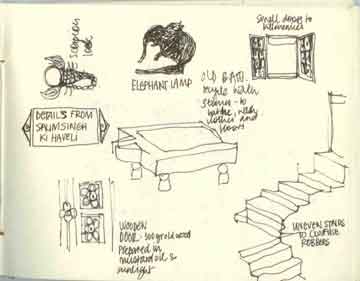 Scorpion
lock
ELEPHANT LAMP
Small doors to
DETAILS FROM
SALIMSINGH
KI HAVELI
OLD BATH
style with
stones - to
clothes and
WOODEN
DOOR - 300 yr old wood
Prepared in
mustard oil &
sunlight
UNEVEN STAIRS
TO CONFUSE
ROBBERS